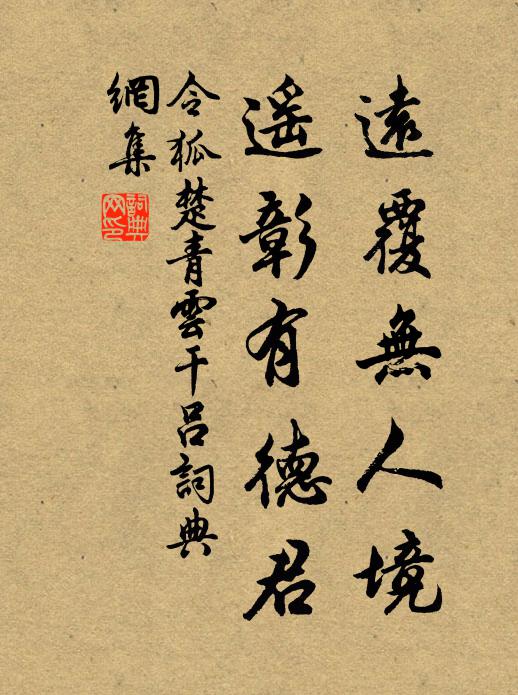 遠覆無人境
遥彰有德君
令狐楚青雲干呂詞典
網集
詞典
网印